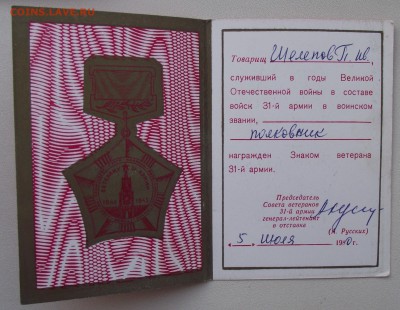 COINS.LAVE.RU
Товарищ Шелепов П. Ив.
служивший в годы Великой
Отечественной войны в составе
войск 31-й армии в воинском
звании,
полковник
награжден Знаком ветерана
31-й армии.
Председатель
Совета ветеранов
31-й армии
генерал-лейтенант
в отставке
(А. Русских)
5 июля 19 г.